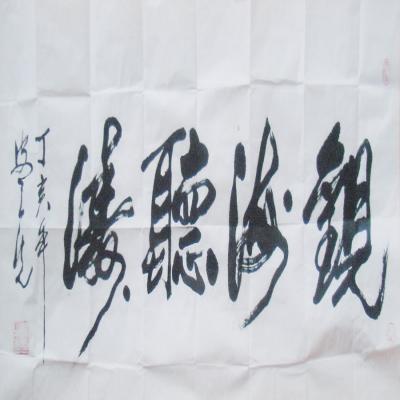 觀海聽濤
丁亥年